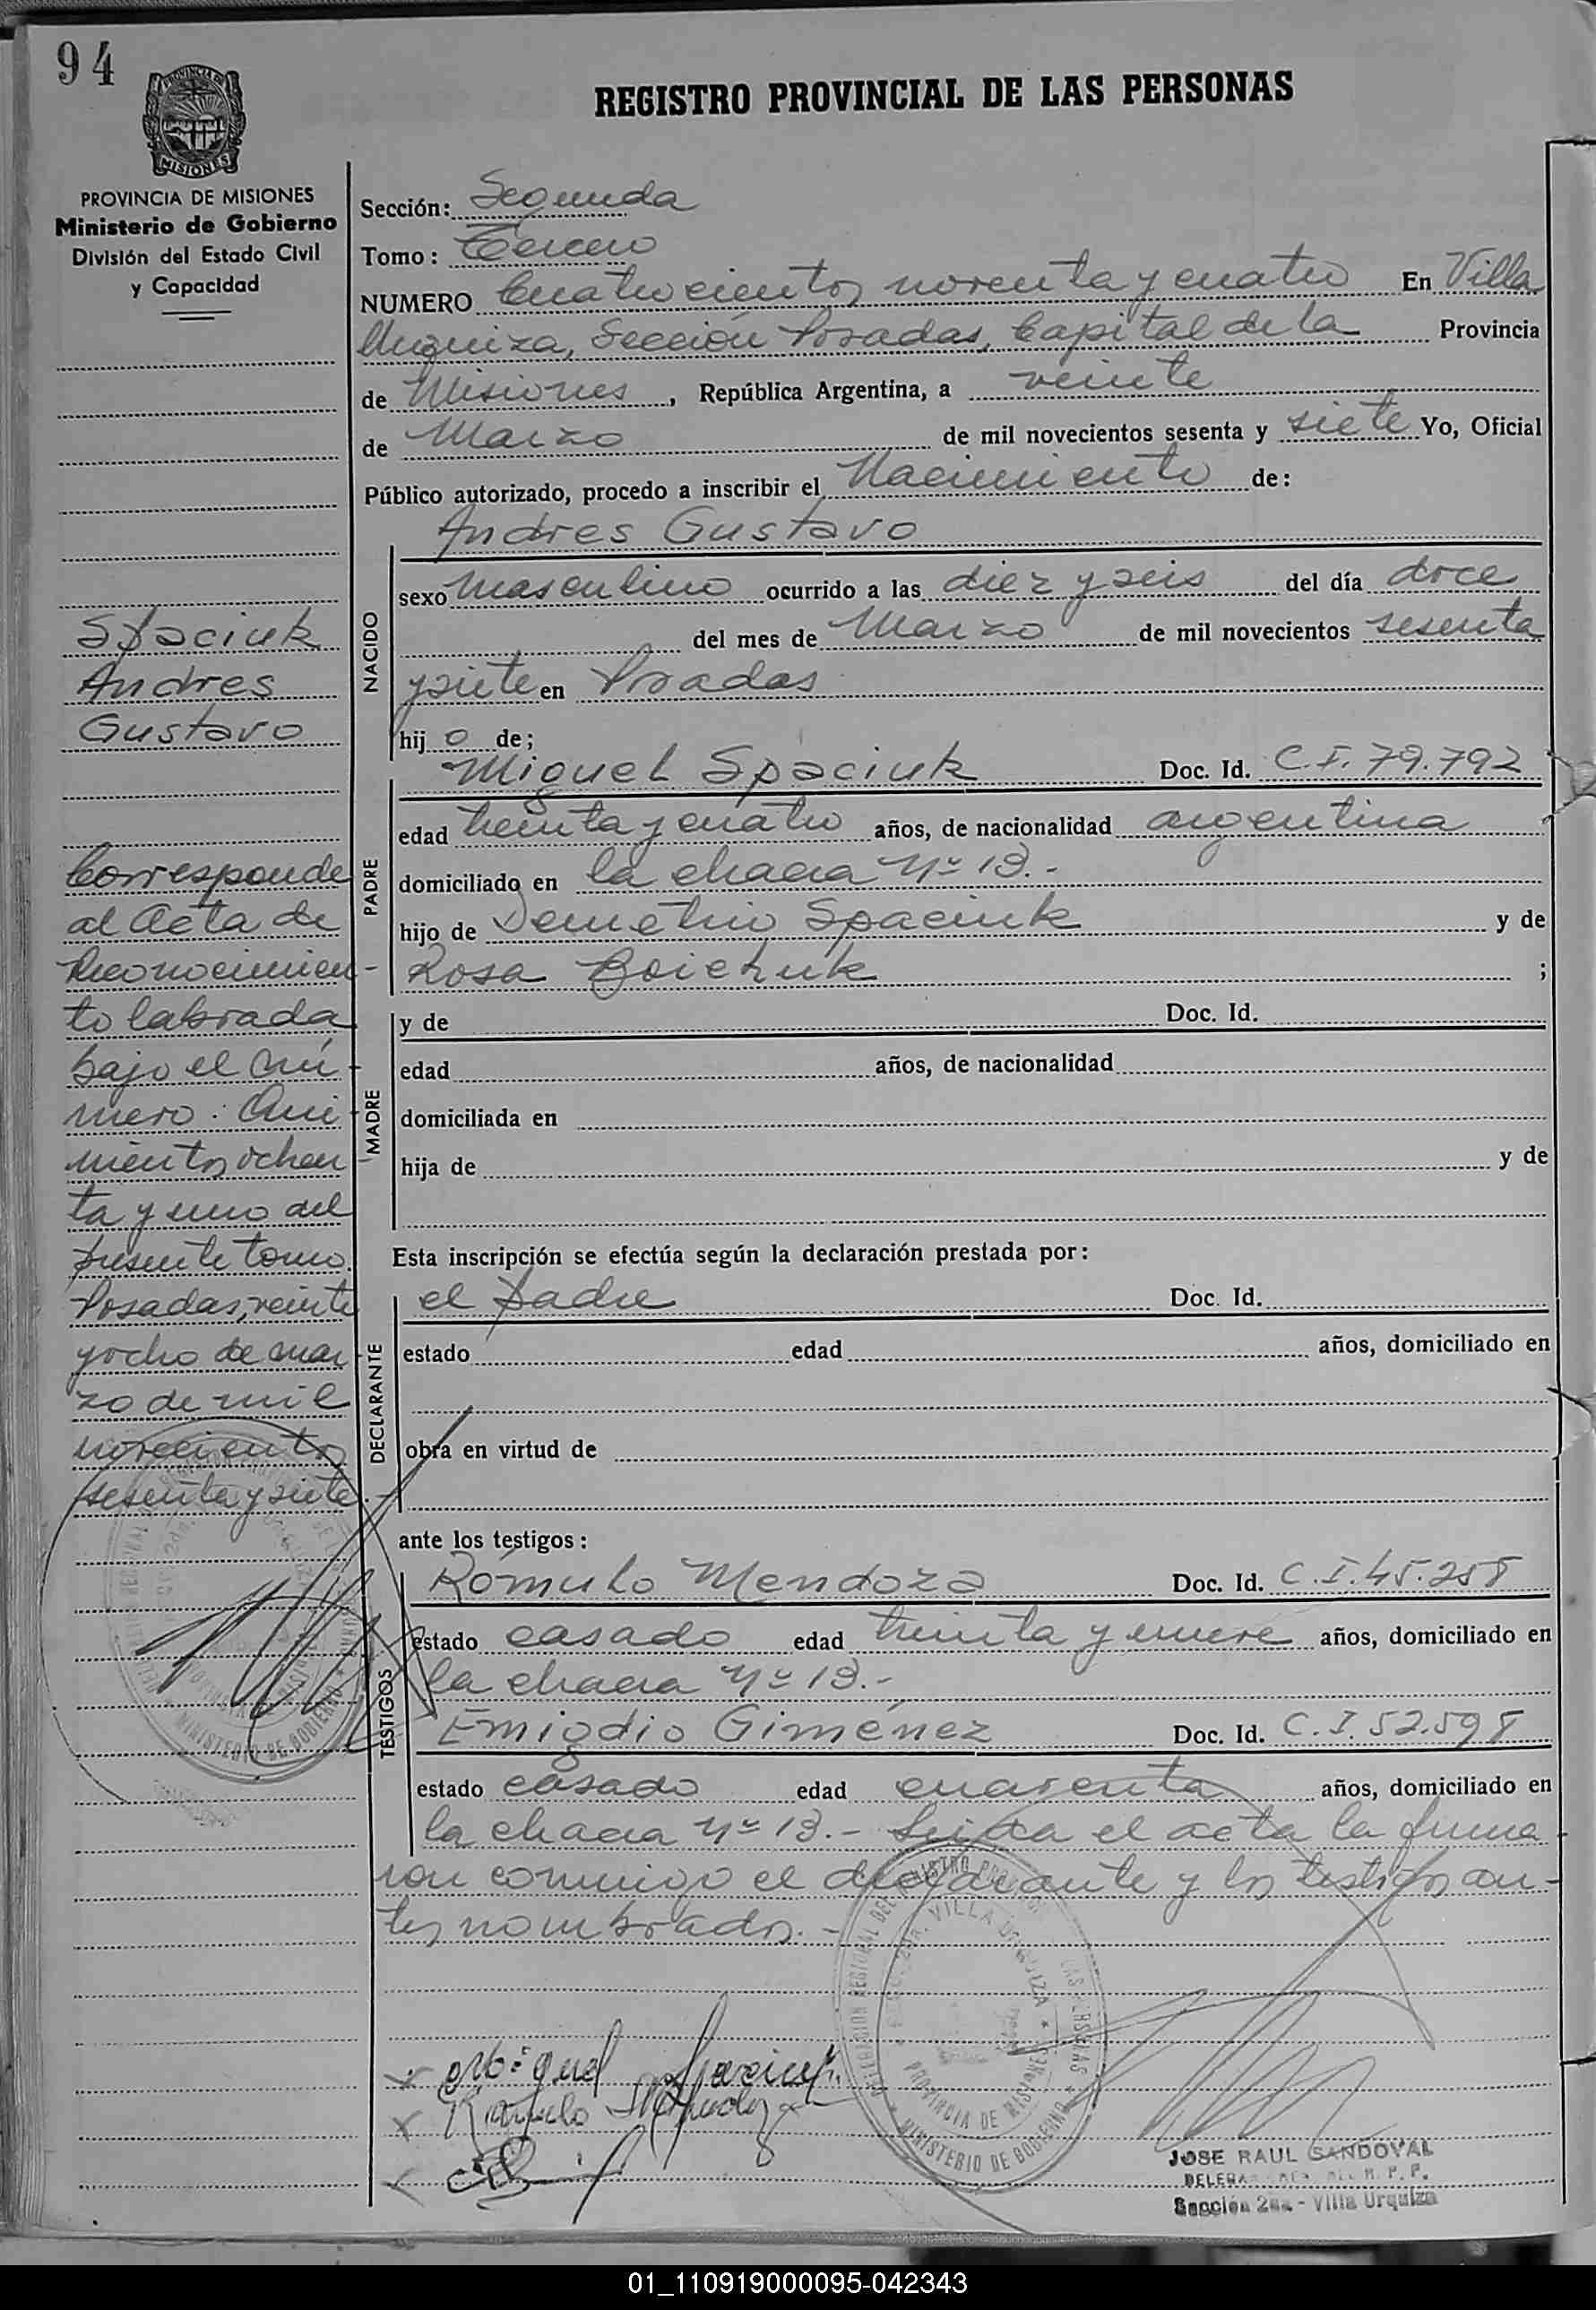 94
PROVINCIA DE
MISIONES
REGISTRO PROVINCIAL DE LAS PERSONAS
PROVINCIA DE MISIONES
Ministerio de Gobierno
División del Estado Civil
y Capacidad
Sección: Segunda
Tomo: Tercero
NUMERO Cuatrocientos noventa y cuatro En Villa
Urquiza, Sección Posadas, Capital de la Provincia
de Misiones, República Argentina, a veinte
de Marzo de mil novecientos sesenta y siete Yo, Oficial
Público autorizado, procedo a inscribir el Nacimiento de:
Andres Gustavo
NACIDO
sexo masculino ocurrido a las diez y seis del día doce
del mes de Marzo de mil novecientos sesenta
y siete en Posadas
hij o de;
Spaciuk
Andres
Gustavo
PADRE
Miguel Spaciuk Doc. Id. C.I. 79.792
edad treinta y cuatro años, de nacionalidad argentina
domiciliado en la chacra Nº 13.-
hijo de Demetrio Spaciuk y de
Rosa Boichuk ;
MADRE
y de Doc. Id.
edad años, de nacionalidad
domiciliada en
hija de y de
Corresponde
al Acta de
Reconocimien-
to labrada
bajo el nú-
mero: Qui-
nientos ochen-
ta y uno del
presente tomo.
Posadas, veinte
y ocho de mar-
zo de mil
novecientos
sesenta y siete.-
Esta inscripción se efectúa según la declaración prestada por:
DECLARANTE
el padre Doc. Id.
estado edad años, domiciliado en
obra en virtud de
ante los testigos:
TESTIGOS
Rómulo Mendoza Doc. Id. C.I. 45.258
estado casado edad treinta y nueve años, domiciliado en
la chacra Nº 13.-
Emigdio Giménez Doc. Id. C.I. 52.598
estado casado edad cuarenta años, domiciliado en
la chacra Nº 13.- Leída el acta la firma-
ron conmigo el declarante y los testigos an-
tes nombrados.-
Miguel Spaciuk
Rómulo Mendoza
VILLA URQUIZA
PROVINCIA DE MISIONES
MINISTERIO DE GOBIERNO
JOSE RAUL SANDOVAL
Sección 2da - Villa Urquiza
01_110919000095-042343